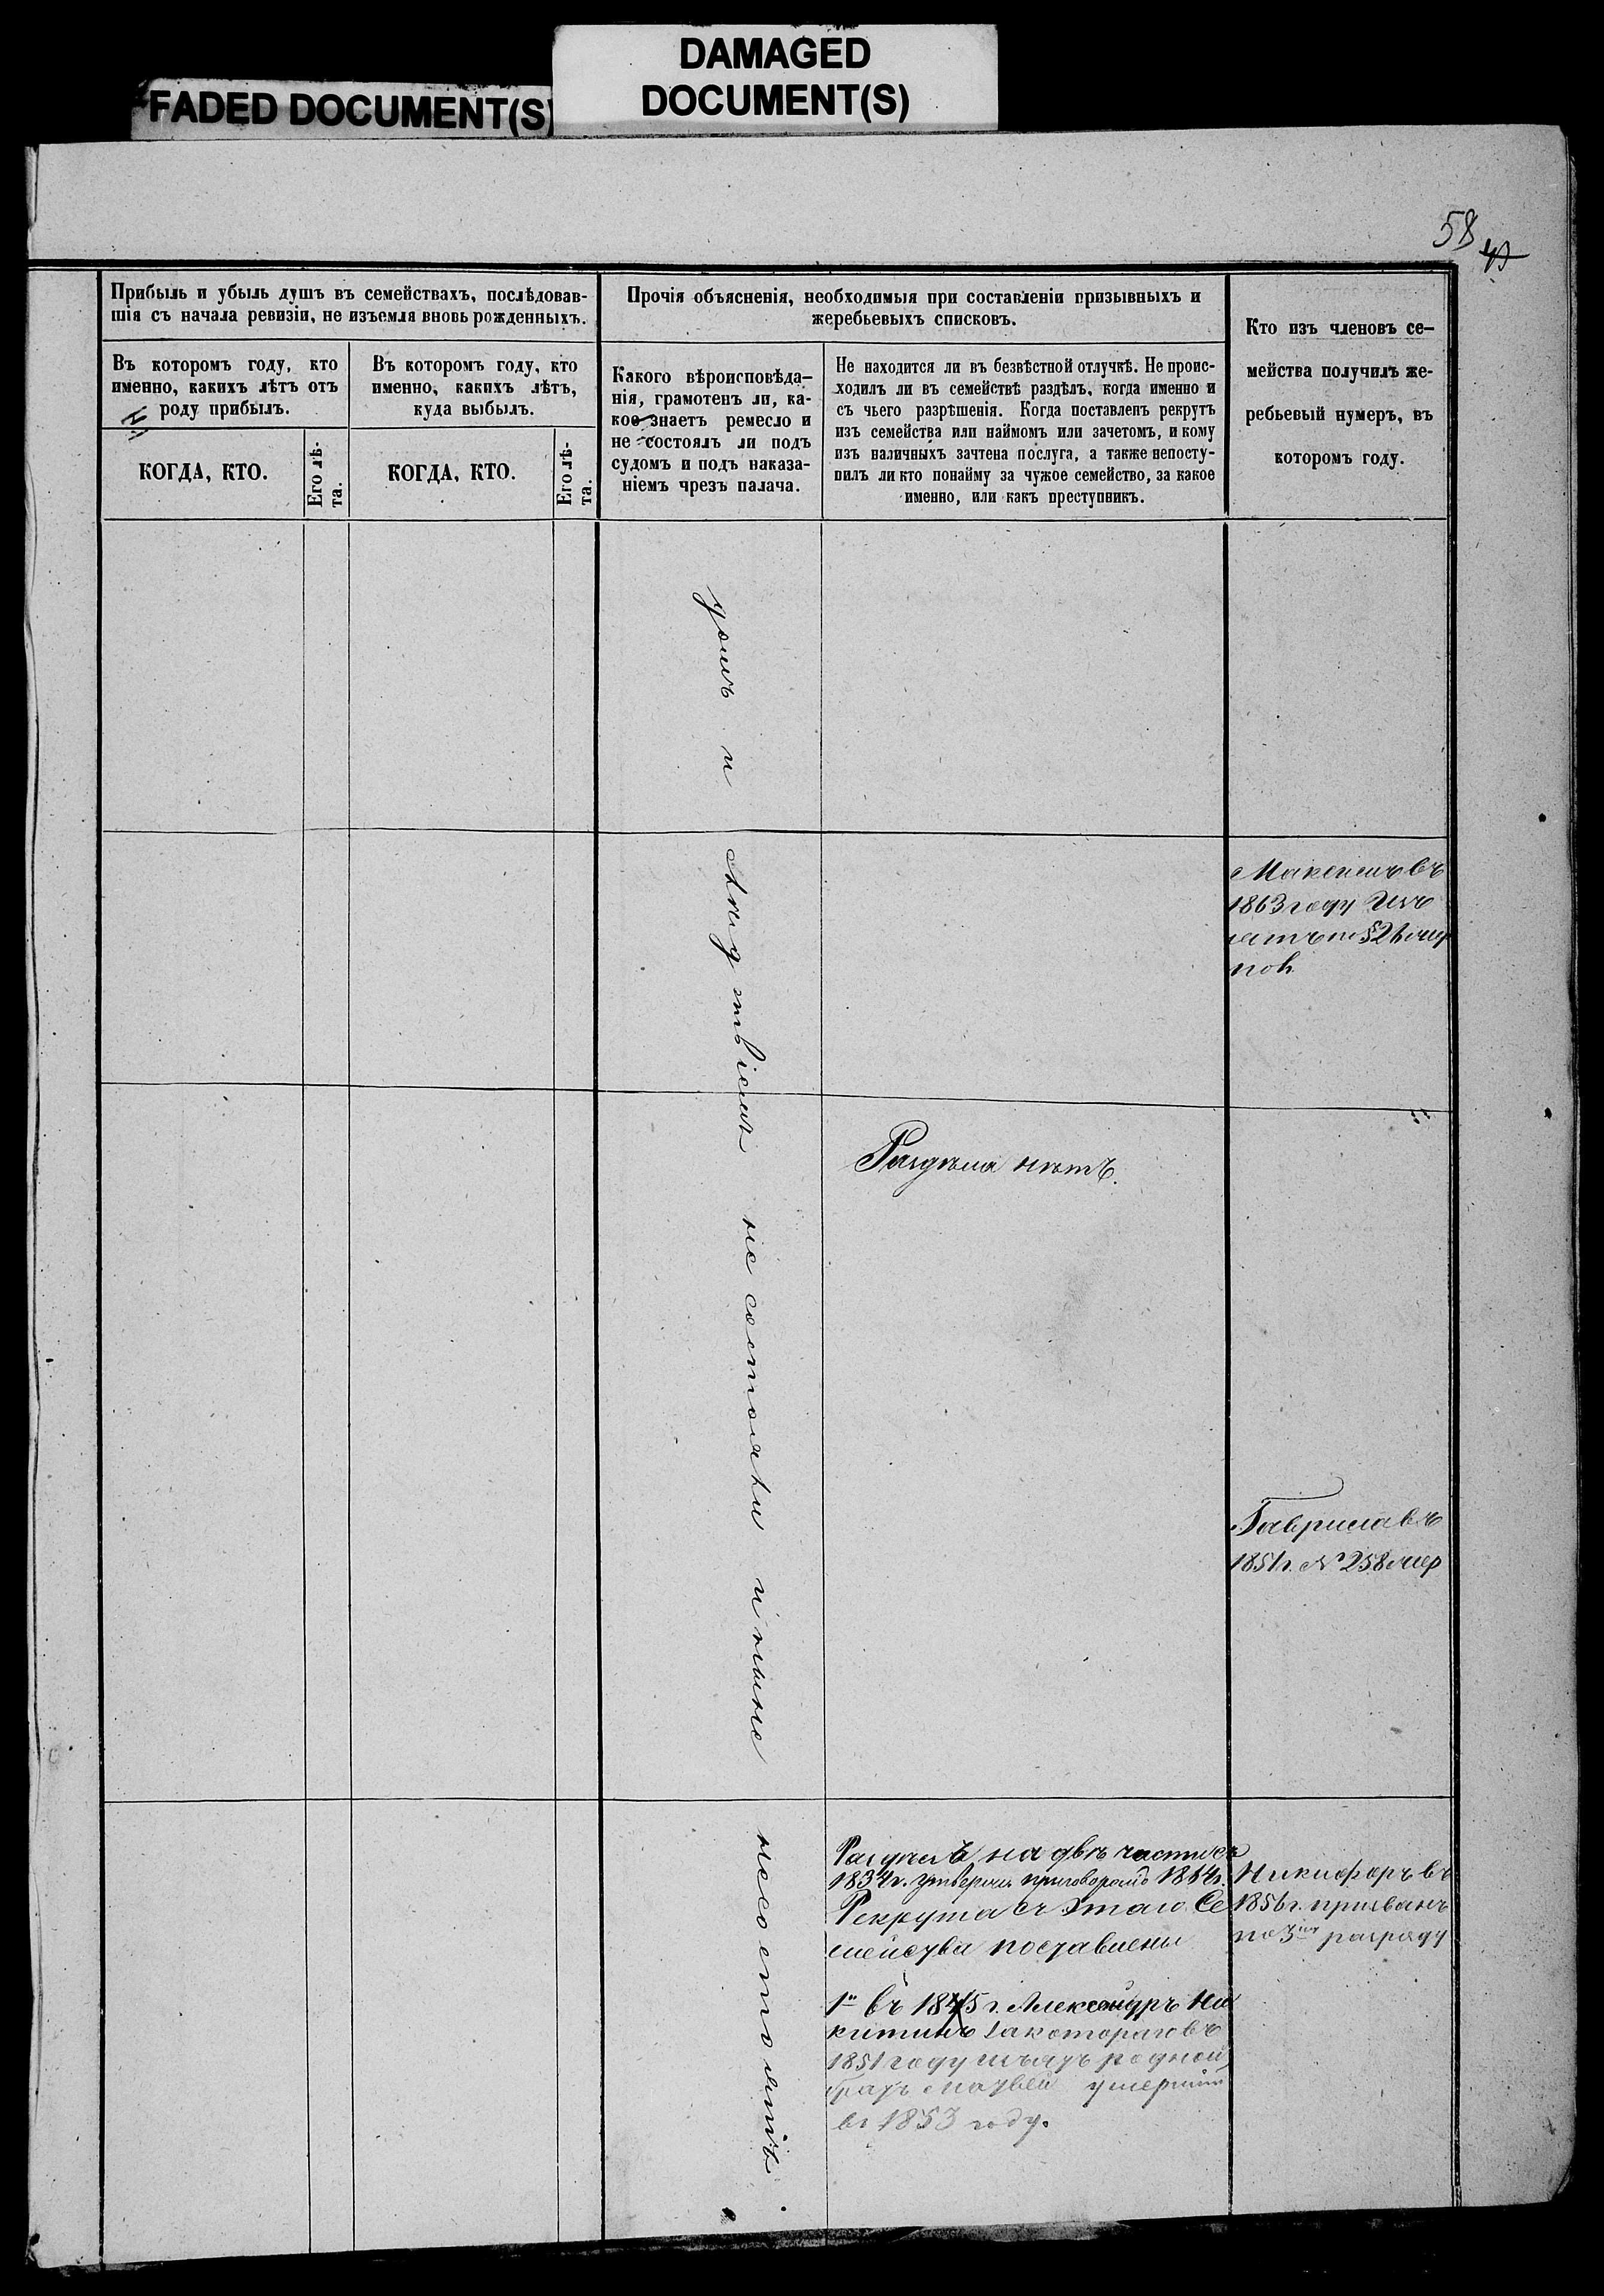 DAMAGED
DOCUMENT(S)
FADED DOCUMENT(S)
58
Прибыль и убыль душъ въ семействахъ, послѣдовав-
шія съ начала ревизіи, не изъемля вновь рожденныхъ.
Въ которомъ году, кто
именно, какихъ лѣтъ отъ
роду прибылъ.
КОГДА, КТО.
Его лѣ-
та.
Въ которомъ году, кто
именно, какихъ лѣтъ,
куда выбылъ.
КОГДА, КТО.
Его лѣ-
та.
Прочія объясненія, необходимыя при составленіи призывныхъ и
жеребьевыхъ списковъ.
Какого вѣроисповѣда-
нія, грамотенъ ли, ка-
кое знаетъ ремесло и
не состоялъ ли подъ
судомъ и подъ наказа-
ніемъ чрезъ палача.
Не находится ли въ безвѣстной отлучкѣ. Не проис-
ходилъ ли въ семействѣ раздѣлъ, когда именно и
съ чьего разрѣшенія. Когда поставленъ рекрутъ
изъ семейства или наймомъ или зачетомъ, и кому
изъ наличныхъ зачтена послуга, а также непосту-
пилъ ли кто понайму за чужое семейство, за какое
именно, или какъ преступникъ.
Кто изъ членовъ се-
мейства получилъ же-
ребьевый нумеръ, въ
которомъ году.
и слѣдствіемъ не состояли и ныне несостоитъ.
въ
1863 году
Раздѣла нѣтъ.
Гаврила въ
1851 г. № 258
Раздѣлъ на двѣ части съ
1834 г. приговоромъ
Рекрута съ Этаго Се
мейства поставлены
1й въ 1845 г. Александръ Ни
китинъ закотораго въ
1851 году родной
братъ Матвей умершій
въ 1853 году.
Никифоръ въ
1856 г. призванъ
по 3му разряду